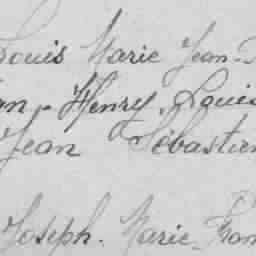 Louis Marie Jean-
an-Henry, Louis
Jean Sébastien
Joseph. Marie-Fran